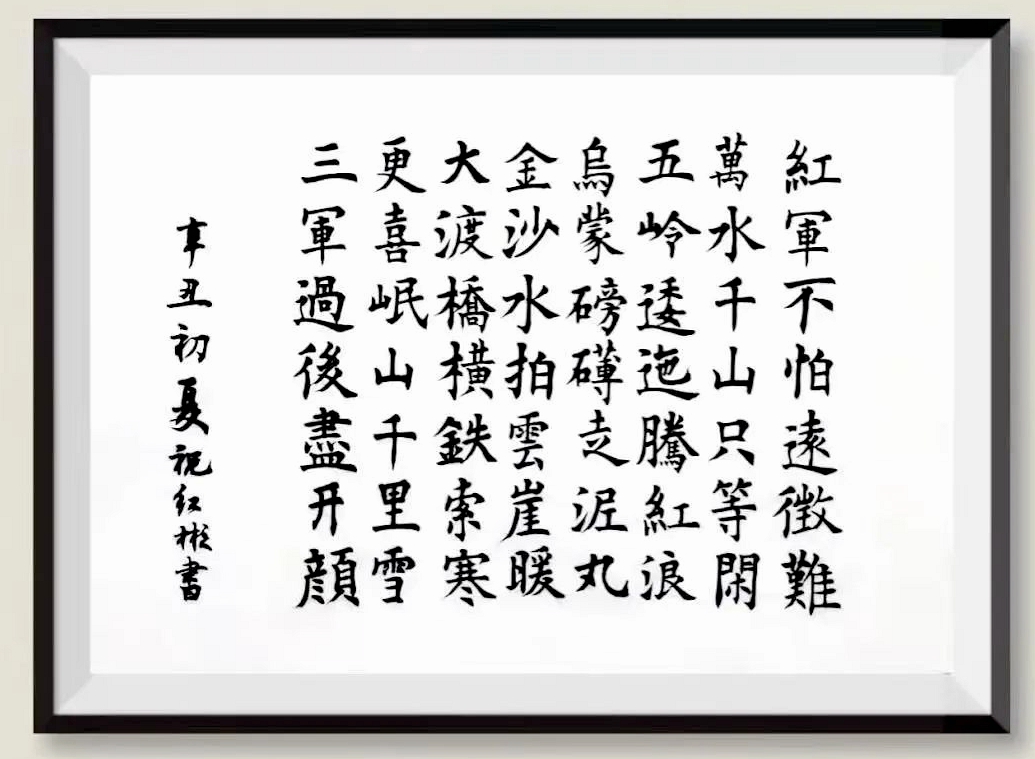 紅軍不怕遠徵難
萬水千山只等閑
五岭逶迤騰紅浪
烏蒙磅礴走泥丸
金沙水拍雲崖暖
大渡橋橫鉄索寒
更喜岷山千里雪
三軍過後盡开顔
辛丑初夏祝红彬書